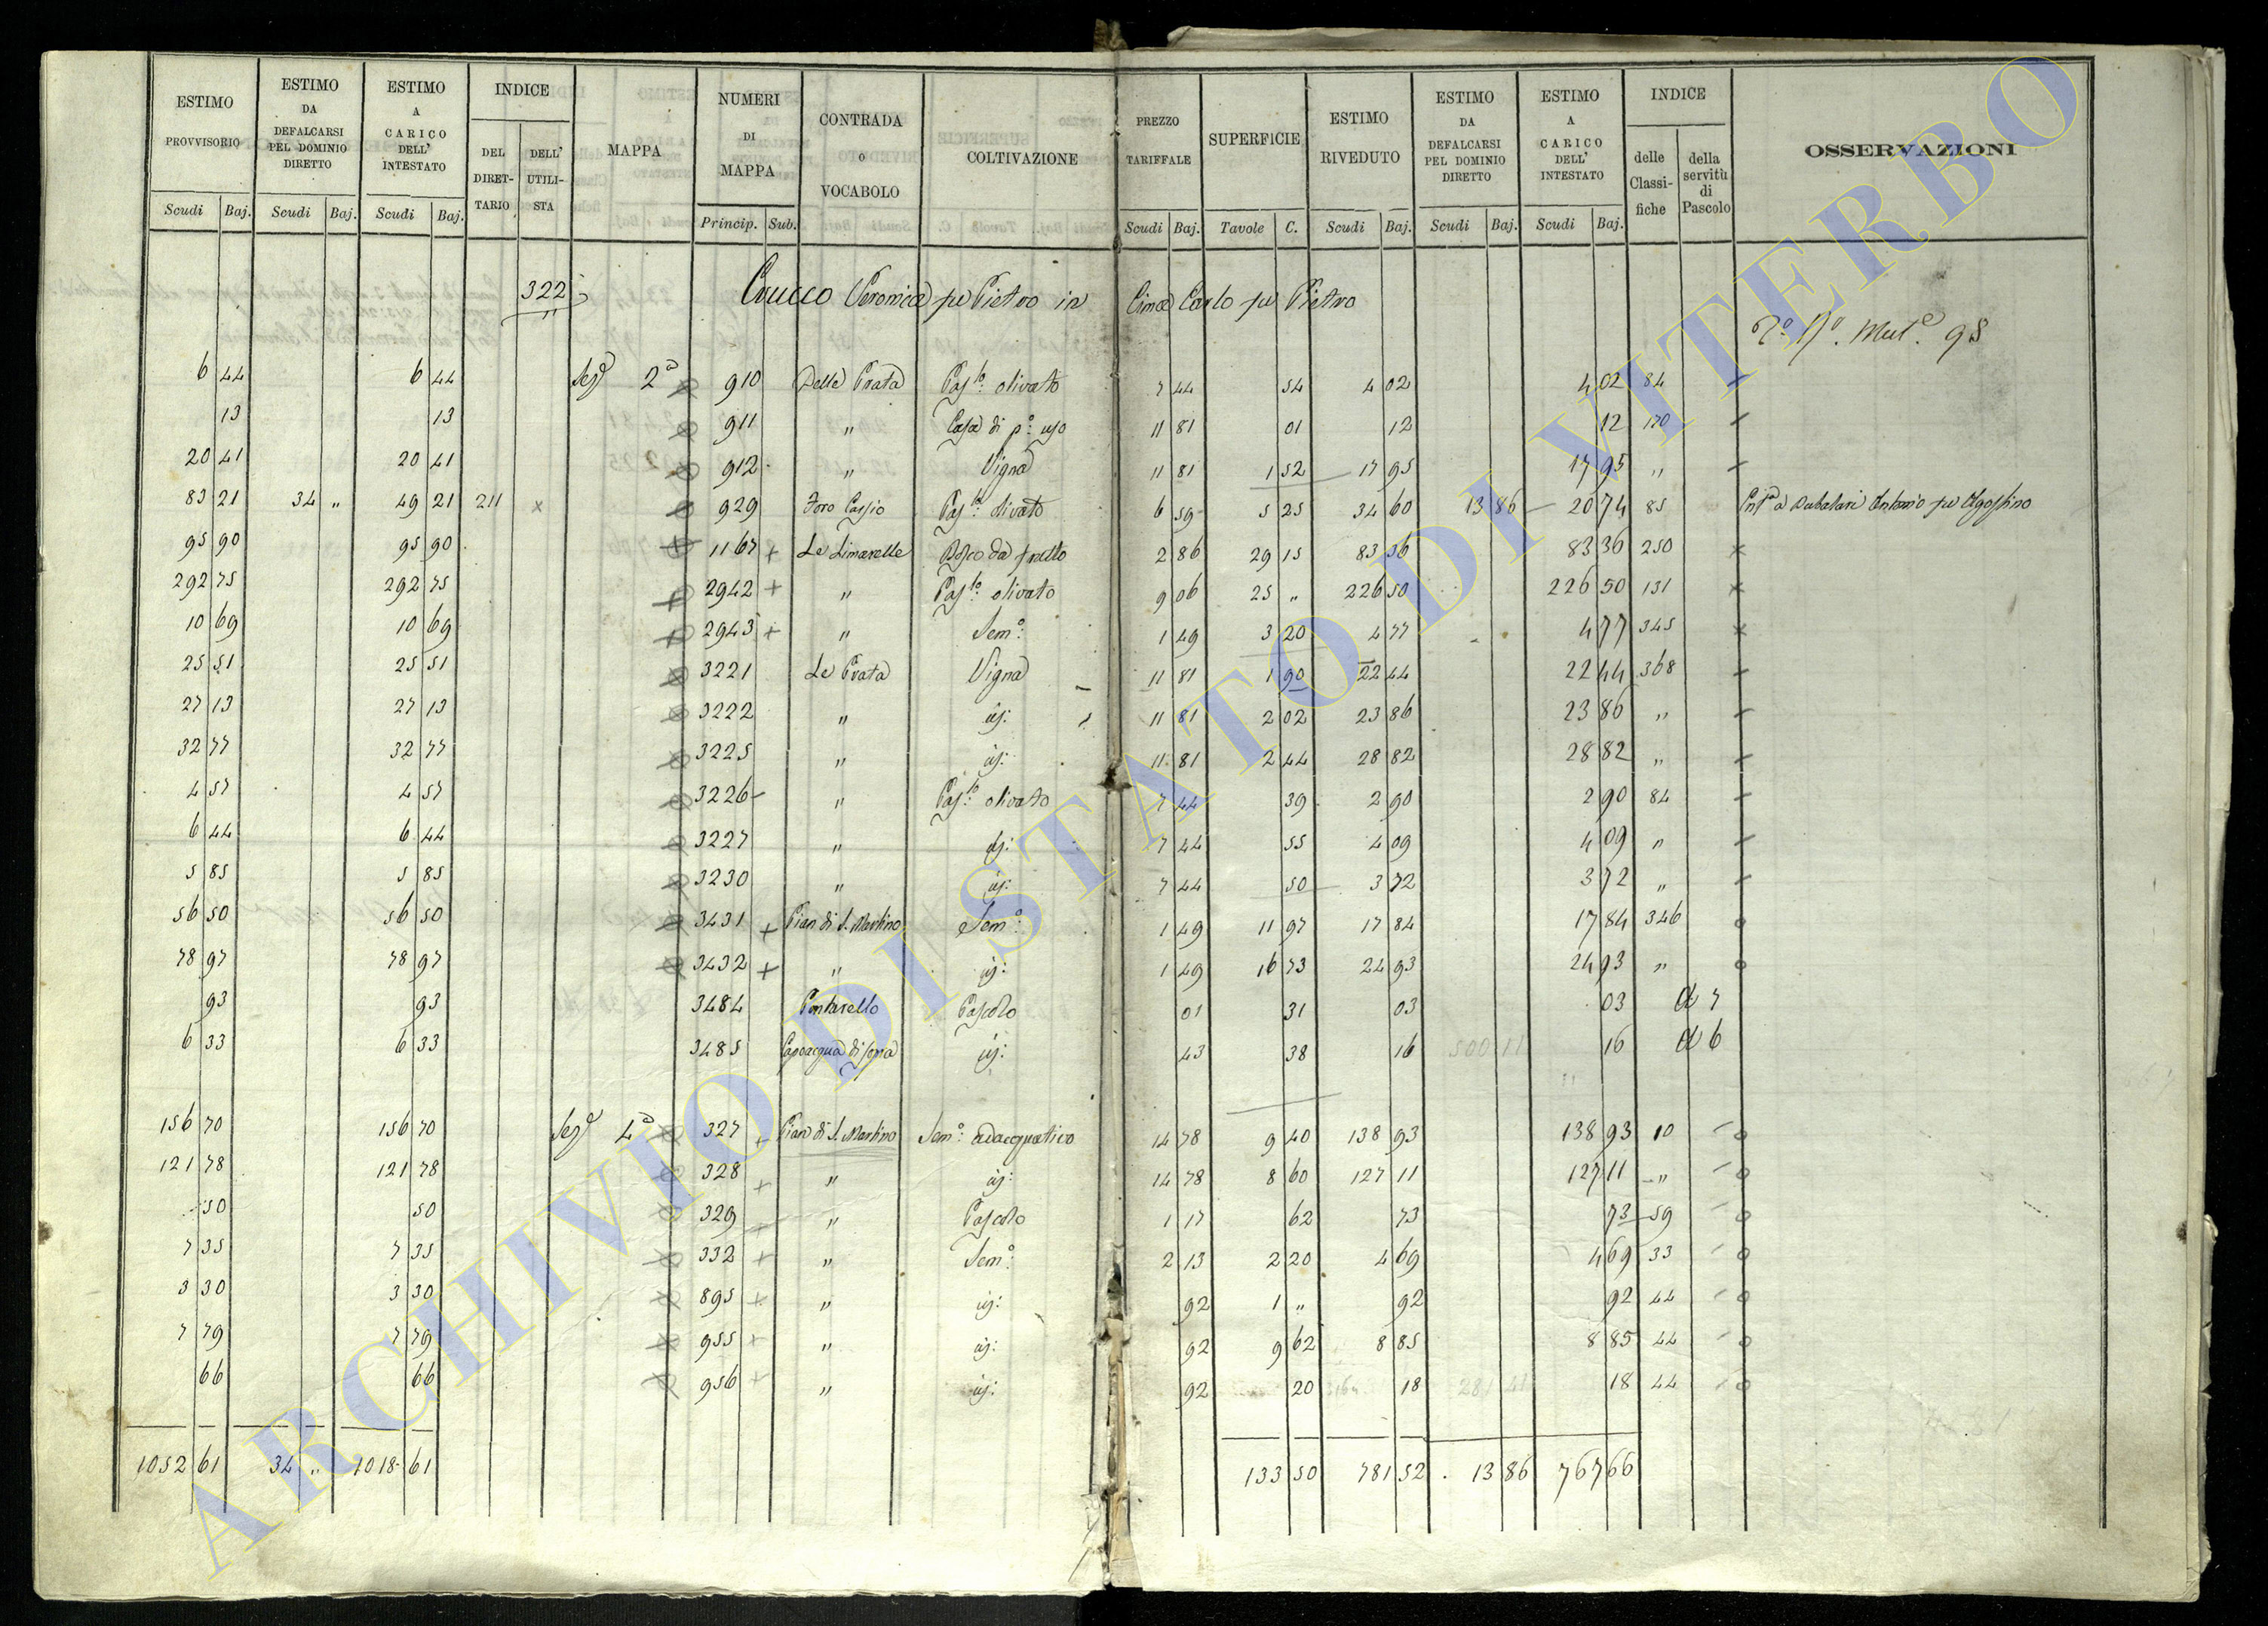 ESTIMO PROVVISORIO | ESTIMO DA DEFALCARSI PEL DOMINIO DIRETTO | ESTIMO A CARICO DELL' INTESTATO | INDICE | MAPPA | NUMERI DI MAPPA | CONTRADA o VOCABOLO | COLTIVAZIONE | PREZZO TARIFFALE | SUPERFICIE | ESTIMO RIVEDUTO | ESTIMO DA DEFALCARSI PEL DOMINIO DIRETTO | ESTIMO A CARICO DELL' INTESTATO | INDICE | OSSERVAZIONI
DEL DIRET-TARIO | DELL' UTILI-STA | delle Classi-fiche | della servitù di Pascolo
Scudi | Baj. | Scudi | Baj. | Scudi | Baj. | Princip. | Sub. | Scudi | Baj. | Tavole | C. | Scudi | Baj. | Scudi | Baj. | Scudi | Baj.
322 Veronica fu Pietro in Cima Carlo fu Pietro
Mut.e 98
6 44 | 6 44 | Sez.a 2a | 910 | Delle Prata | Pas.to olivato | 7 44 | 54 | 4 02 | 4 02 | 84
13 | 13 | 911 | " | Casa di p.o uso | 11 81 | 01 | 12 | 12 | 170
20 41 | 20 41 | 912 | " | Vigna | 11 81 | 1 52 | 17 95 | 17 95 | "
83 21 | 34 " | 49 21 | 211 | x | 929 | Foro Cassio | Pas.to olivato | 6 59 | 5 25 | 34 60 | 13 86 | 20 74 | 85 | Antonio fu Agostino
95 90 | 95 90 | 1167 + | Le Limarelle | Bosco da frutto | 2 86 | 29 15 | 83 36 | 83 36 | 250 | x
292 75 | 292 75 | 2942 + | " | Pas.to olivato | 9 06 | 25 " | 226 50 | 226 50 | 131 | x
10 69 | 10 69 | 2943 + | " | Sem.o | 1 49 | 3 20 | 4 77 | 4 77 | 345 | x
25 51 | 25 51 | 3221 | Le Prata | Vigna | 11 81 | 1 90 | 22 44 | 22 44 | 368
27 13 | 27 13 | 3222 | " | id: | 11 81 | 2 02 | 23 86 | 23 86 | "
32 77 | 32 77 | 3225 | " | id: | 11 81 | 2 44 | 28 82 | 28 82 | "
4 57 | 4 57 | 3226 | " | Pas.to olivato | 7 44 | 39 | 2 90 | 2 90 | 84
6 44 | 6 44 | 3227 | " | id: | 7 44 | 55 | 4 09 | 4 09 | "
5 85 | 5 85 | 3230 | " | id: | 7 44 | 50 | 3 72 | 3 72 | "
56 50 | 56 50 | 3431 + | Pian di S. Martino | Sem.o | 1 49 | 11 97 | 17 84 | 17 84 | 346 | o
78 97 | 78 97 | 3432 + | " | id: | 1 49 | 16 73 | 24 93 | 24 93 | " | o
93 | 93 | 3484 | Pontarello | Pascolo | 01 | 31 | 03 | 03 | A 7
6 33 | 6 33 | 3485 | Capoacqua di sopra | id: | 43 | 38 | 16 | 16 | A 6
156 70 | 156 70 | Sez.a 4a | 327 + | Pian di S. Martino | Sem.o adacquativo | 14 78 | 9 40 | 138 93 | 138 93 | 10 | o
121 78 | 121 78 | 328 + | " | id: | 14 78 | 8 60 | 127 11 | 127 11 | " | o
50 | 50 | 329 + | " | Pascolo | 1 17 | 62 | 73 | 73 | 59 | o
7 35 | 7 35 | 332 + | " | Sem.o | 2 13 | 2 20 | 4 69 | 4 69 | 33 | o
3 30 | 3 30 | 895 + | " | id: | 92 | 1 " | 92 | 92 | 44 | o
7 79 | 7 79 | 955 + | " | id: | 92 | 9 62 | 8 85 | 8 85 | 44 | o
66 | 66 | 956 + | " | id: | 92 | 20 | 18 | 18 | 44 | o
1052 61 | 34 " | 1018 61 | 133 50 | 781 52 | 13 86 | 767 66
ARCHIVIO DI STATO DI VITERBO